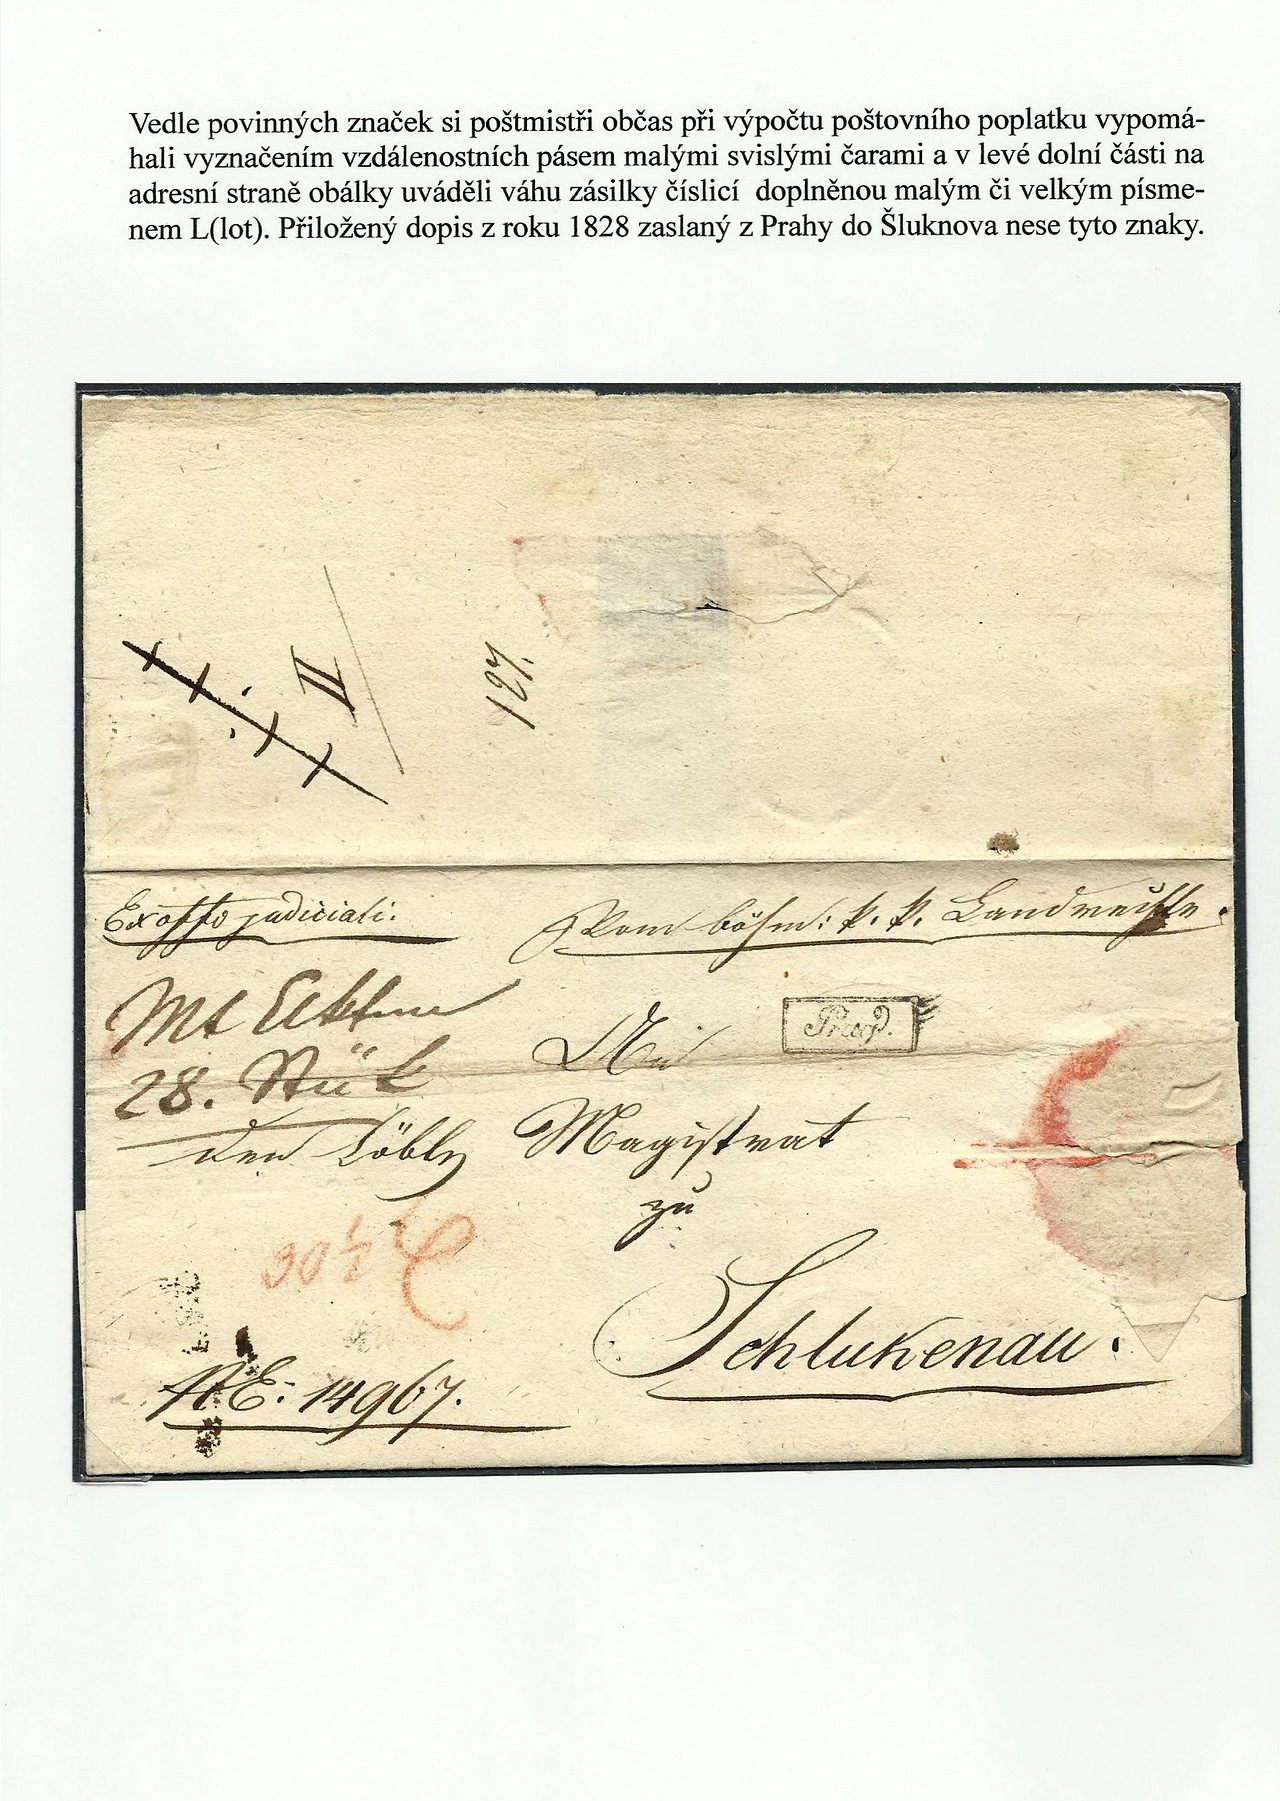 Vedle povinných značek si poštmistři občas při výpočtu poštovního poplatku vypomá-
hali vyznačením vzdálenostních pásem malými svislými čarami a v levé dolní části na
adresní straně obálky uváděli váhu zásilky číslicí doplněnou malým či velkým písme-
nem L(lot). Přiložený dopis z roku 1828 zaslaný z Prahy do Šluknova nese tyto znaky.
II
127.
Ex offo judiciali.
Vom böhm: k. k. Landrechte.
28. Stük
An
Prag.
den Löbln Magistrat
zu
30½ L
Schlukenau.
NE: 14967.